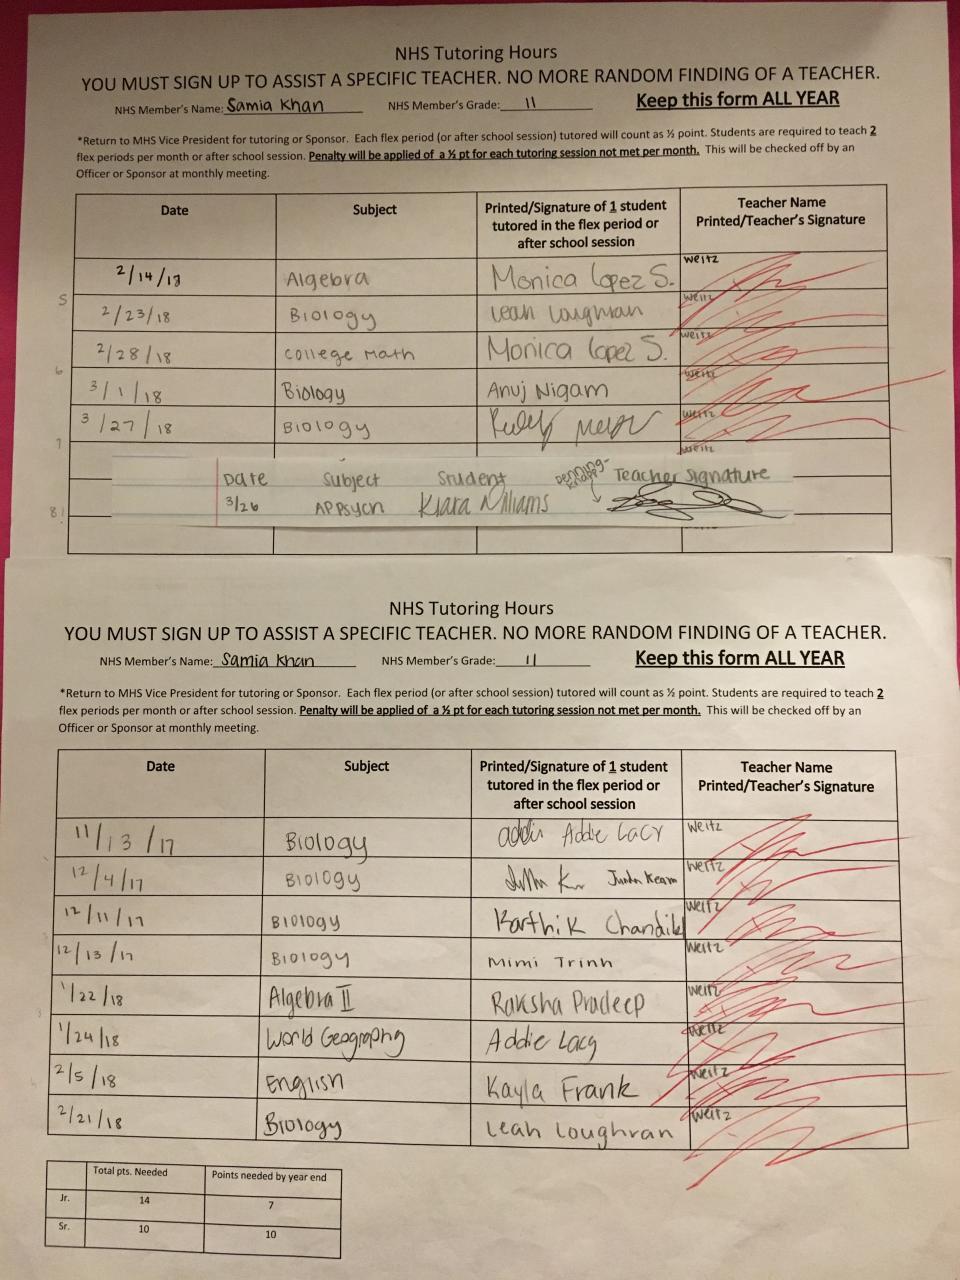 NHS Tutoring Hours
YOU MUST SIGN UP TO ASSIST A SPECIFIC TEACHER. NO MORE RANDOM FINDING OF A TEACHER.
NHS Member's Name: Samia Khan NHS Member's Grade: 11 Keep this form ALL YEAR
*Return to MHS Vice President for tutoring or Sponsor. Each flex period (or after school session) tutored will count as ½ point. Students are required to teach 2
flex periods per month or after school session. Penalty will be applied of a ½ pt for each tutoring session not met per month. This will be checked off by an
Officer or Sponsor at monthly meeting.
Date Subject Printed/Signature of 1 student tutored in the flex period or after school session Teacher Name Printed/Teacher's Signature
2/14/13 Algebra Monica Lopez S. Weitz
5 2/23/18 Biology Leah Loughran Weitz
2/28/18 College Math Monica Lopez S. Weitz
6 3/1/18 Biology Anuj Nigam Weitz
3/27/18 Biology Weitz
7 Weitz
Date Subject Student pending- Teacher Signature
8 3/26 AP Psych Kiara Williams
NHS Tutoring Hours
YOU MUST SIGN UP TO ASSIST A SPECIFIC TEACHER. NO MORE RANDOM FINDING OF A TEACHER.
NHS Member's Name: Samia Khan NHS Member's Grade: 11 Keep this form ALL YEAR
*Return to MHS Vice President for tutoring or Sponsor. Each flex period (or after school session) tutored will count as ½ point. Students are required to teach 2
flex periods per month or after school session. Penalty will be applied of a ½ pt for each tutoring session not met per month. This will be checked off by an
Officer or Sponsor at monthly meeting.
Date Subject Printed/Signature of 1 student tutored in the flex period or after school session Teacher Name Printed/Teacher's Signature
11/13/17 Biology Addie Lacy Weitz
12/4/17 Biology Weitz
12/11/17 Biology Karthik Weitz
12/13/17 Biology Mimi Trinh Weitz
3 1/22/18 Algebra II Raksha Pradeep Weitz
1/24/18 World Geography Addie Lacy Weitz
4 2/5/18 English Kayla Frank Weitz
2/21/18 Biology Leah Loughran Weitz
Total pts. Needed Points needed by year end
Jr. 14 7
Sr. 10 10